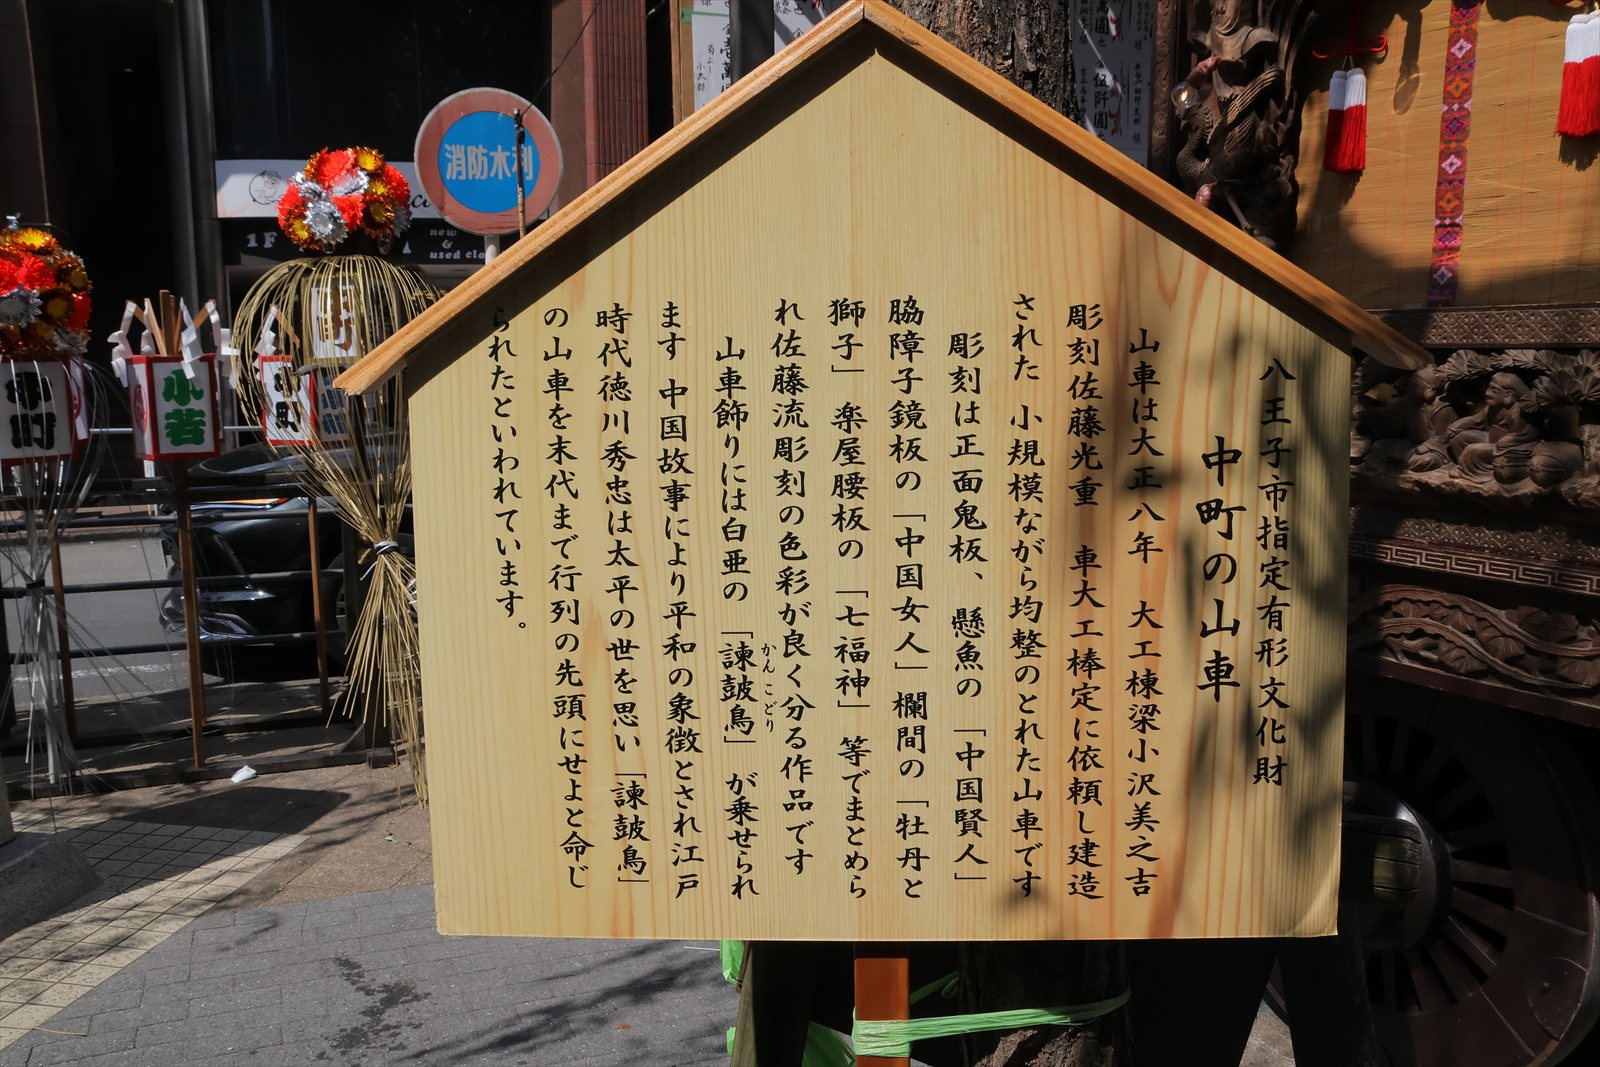 八王子市指定有形文化財
中町の山車
山車は大正八年　大工棟梁小沢美之吉
彫刻佐藤光重　車大工棒定に依頼し建造
された　小規模ながら均整のとれた山車です
彫刻は正面鬼板、懸魚の「中国賢人」
脇障子鏡板の「中国女人」欄間の「牡丹と
獅子」楽屋腰板の「七福神」等でまとめら
れ佐藤流彫刻の色彩が良く分る作品です
山車飾りには白亜の「諌鼓鳥」が乗せられ
かんこどり
ます　中国故事により平和の象徴とされ江戸
時代徳川秀忠は太平の世を思い「諌鼓鳥」
の山車を末代まで行列の先頭にせよと命じ
られたといわれています。
消防水利
1F
new
&
used clo
小若
中町
中町
伍阡圓也
小太郎